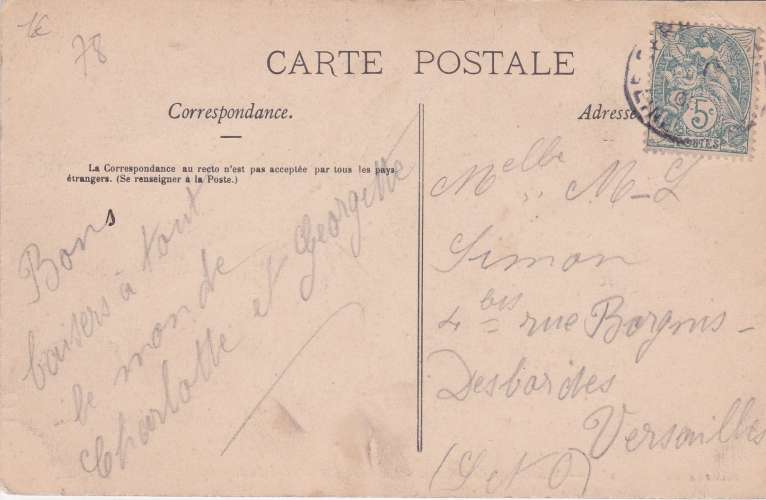 1€
78
CARTE POSTALE
Correspondance.
La Correspondance au recto n'est pas acceptée par tous les pays
étrangers. (Se renseigner à la Poste.)
Bons
baisers à tout
le monde
Charlotte et Georgette
Adresse
5c
POSTES
Melle M-L
Simon
4 bis rue Borgnis-
Desbordes
Versailles
(S et O)